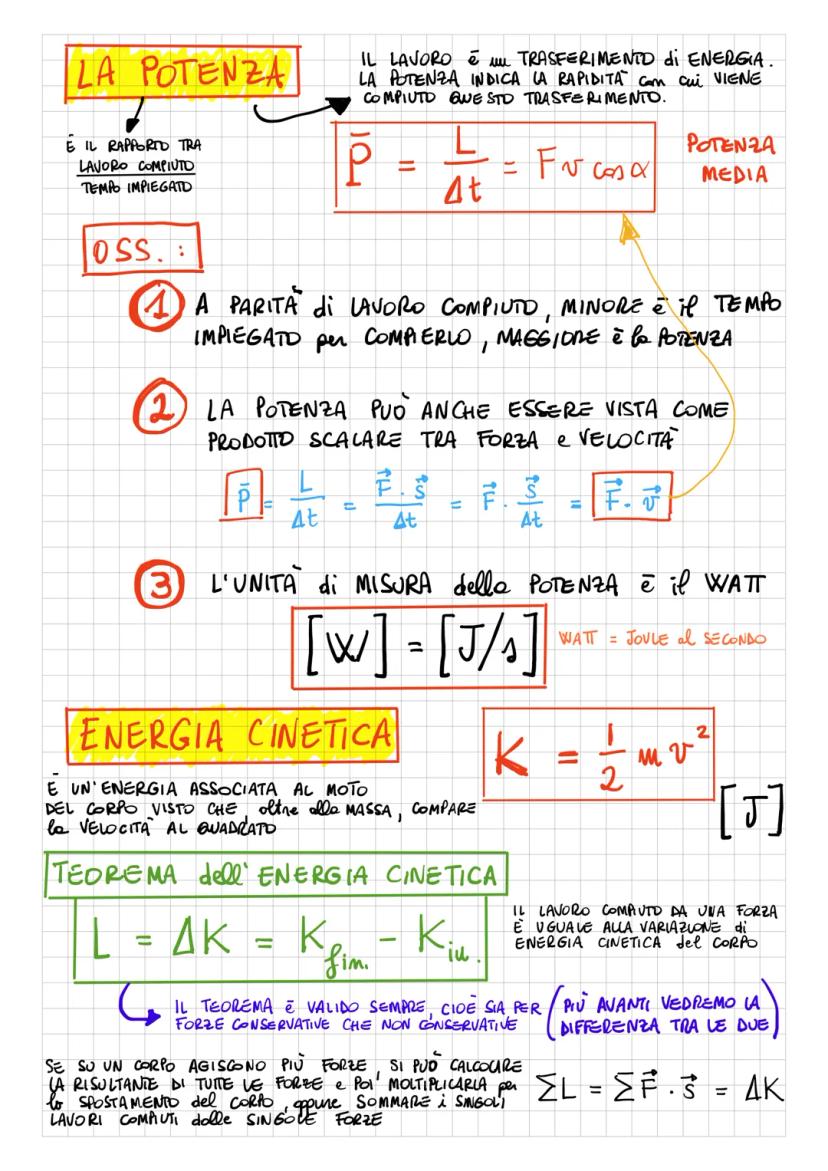 LA POTENZA
IL LAVORO è un TRASFERIMENTO di ENERGIA.
LA POTENZA INDICA LA RAPIDITÀ con cui VIENE
COMPIUTO QUESTO TRASFERIMENTO.
È IL RAPPORTO TRA
LAVORO COMPIUTO
TEMPO IMPIEGATO
P̄ = L/Δt = F v cos α
POTENZA
MEDIA
OSS. :
1 A PARITÀ di LAVORO COMPIUTO, MINORE è il TEMPO
IMPIEGATO per COMPIERLO, MAGGIORE è la POTENZA
2 LA POTENZA PUÒ ANCHE ESSERE VISTA COME
PRODOTTO SCALARE TRA FORZA e VELOCITÀ
P̄ = L/Δt = F⃗ · s⃗/Δt = F⃗ · s⃗/Δt = F⃗ · v⃗
3 L'UNITÀ di MISURA della POTENZA è il WATT
[W] = [J/s]
WATT = JOULE al SECONDO
ENERGIA CINETICA
K = 1/2 m v²
[J]
È UN'ENERGIA ASSOCIATA AL MOTO
DEL CORPO VISTO CHE, oltre alla MASSA, COMPARE
la VELOCITÀ AL QUADRATO
TEOREMA dell'ENERGIA CINETICA
L = ΔK = K fin. - K in.
IL LAVORO COMPIUTO DA UNA FORZA
È UGUALE ALLA VARIAZIONE di
ENERGIA CINETICA del CORPO
IL TEOREMA è VALIDO SEMPRE, CIOÈ SIA PER
FORZE CONSERVATIVE CHE NON CONSERVATIVE
(PIÙ AVANTI VEDREMO LA
DIFFERENZA TRA LE DUE)
SE SU UN CORPO AGISCONO PIÙ FORZE, SI PUÒ CALCOLARE
LA RISULTANTE DI TUTTE LE FORZE e POI MOLTIPLICARLA per
lo SPOSTAMENTO del CORPO, oppure SOMMARE i SINGOLI
LAVORI COMPIUTI dalle SINGOLE FORZE
ΣL = ΣF⃗ · s⃗ = ΔK